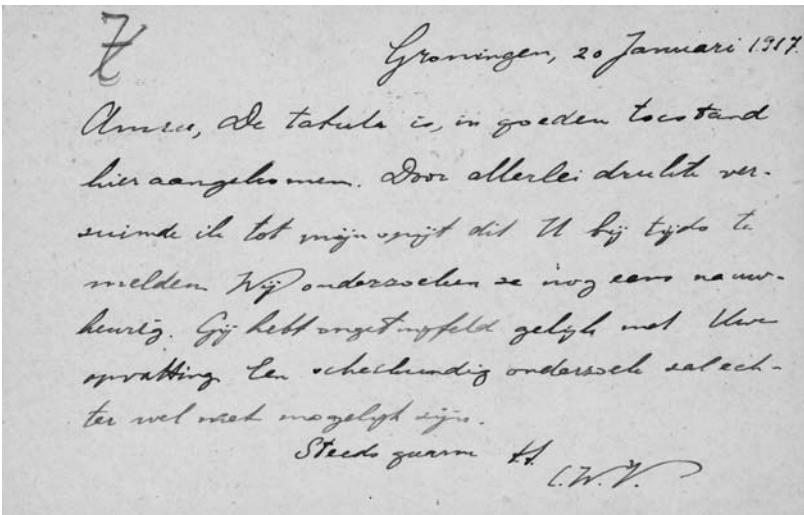 Groningen, 20 Januari 1917.
Amice, De tabula is, in goeden toestand
hier aangekomen. Door allerlei drukte ver-
zuimde ik tot mijn spijt dit U bij tijds te
melden. Wij onderzoeken ze nog eens nauw-
keurig. Gij hebt ongetwijfeld gelijk met Uwe
opvatting. Een scheikundig onderzoek zal ech-
ter wel niet mogelijk zijn.
Steeds gaarne tt.
C.W.V.